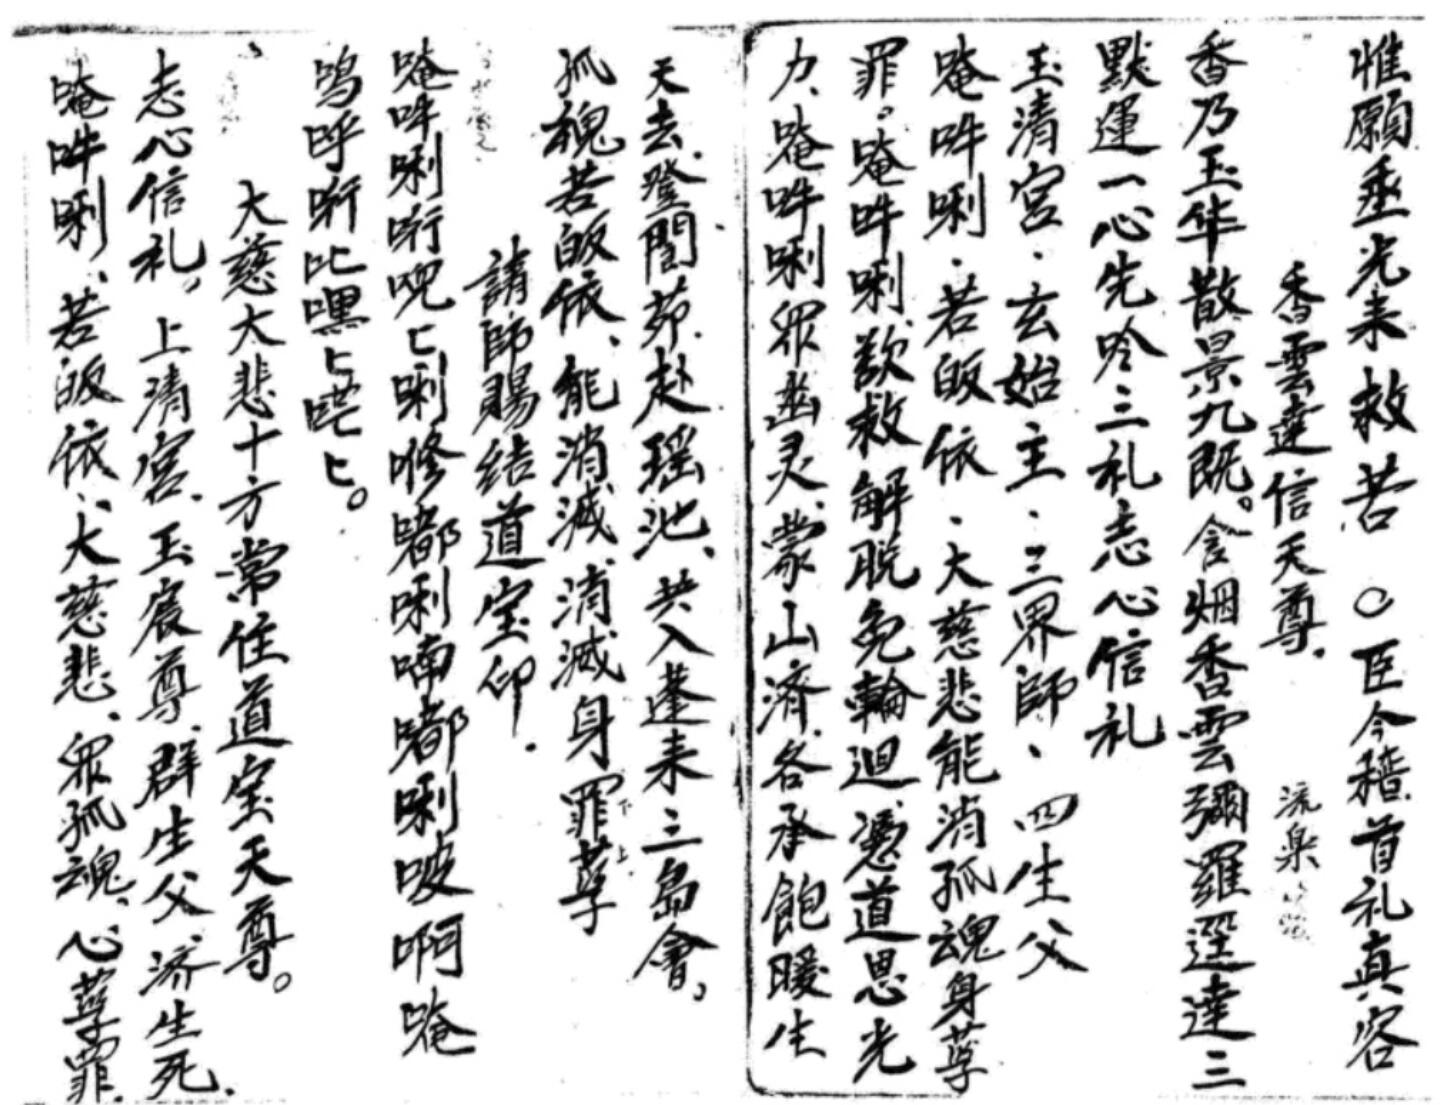 惟願垂光来救苦 〇臣今稽首礼真容
香雲達信天尊。 流樂
香乃玉华散景九既。含烟香雲彌羅逕達三
默運一心先吟三礼志心信礼
玉清宮、玄始主、三界師、四生父
唵吽唎、若皈依、大慈悲能消孤魂身孽
罪。唵吽唎、歎救解脱免輪迴、憑道恩光
力、唵吽唎眾幽灵、蒙山濟、各承飽暖生
天去、登閬苑、赴瑶池、共入蓬来三島會。
孤魂若皈依、能消滅、消滅身罪孽 下 上
請師賜结道宝印。
唵吽唎哘呪匕唎修嘟唎喃嘟唎啵啊唵
嗚呼哘比嘿匕 匕。
大慈大悲十方常住道宝天尊。
志心信礼。上清宮、玉宸尊、群生父、济生死、
唵吽唎、若皈依、大慈悲、眾孤魂、心孽罪、